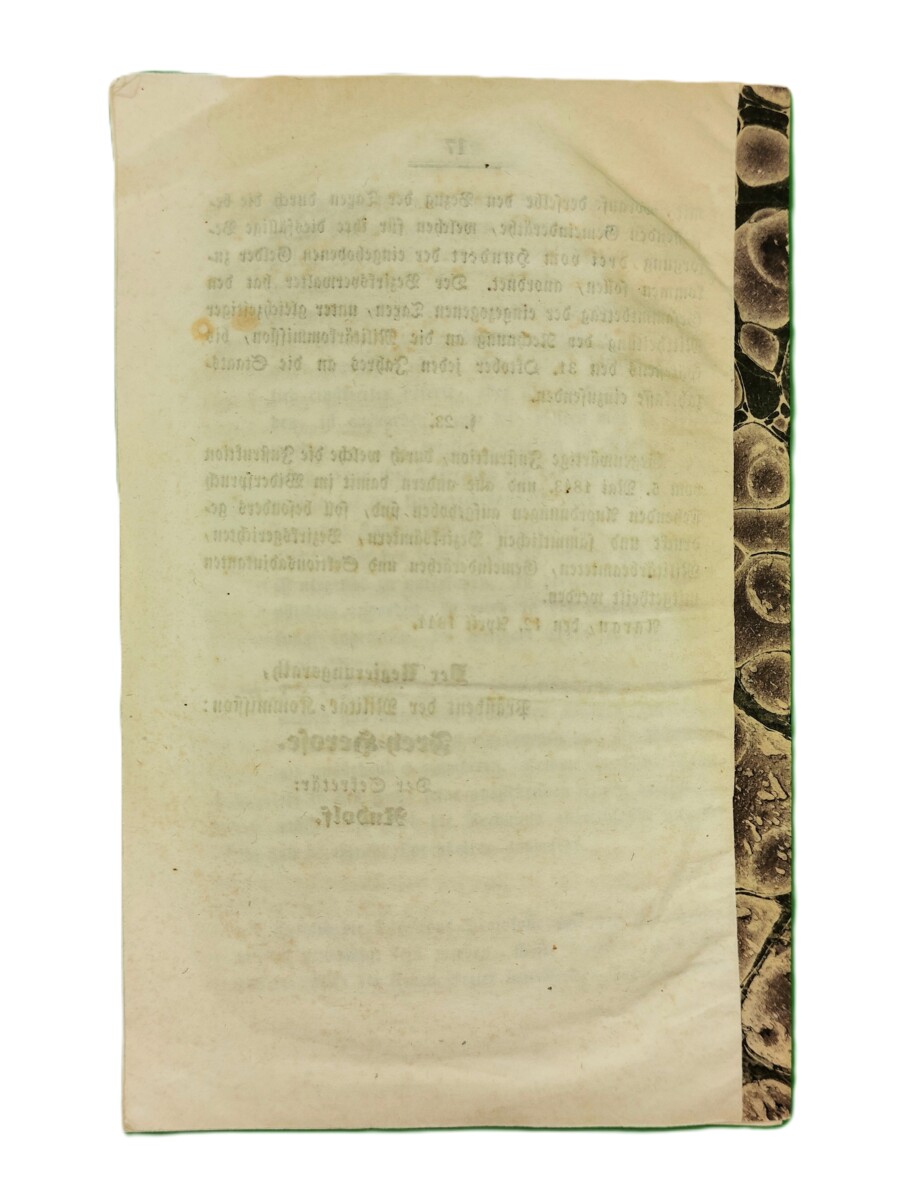 17
derselbe den Bezug der Taxen durch die be-
Gemeinderäthe, welchen für ihre diesfällige Be-
sorgung, drei vom Hundert der eingehobenen Gelder zu-
kommen sollen, anordnet. Der Bezirksverwalter hat den
Gesammtbetrag der eingezogenen Taxen, unter gleichzeitiger
Mittheilung der Rechnung an die Militärkommission, bis
spätestens den 31. Oktober jeden Jahres an die Staats-
einzusenden.
§. 23.
Gegenwärtige Instruktion, durch welche die Instruktion
vom 5. Mai 1843, und alle andern damit im Widerspruch
stehenden Anordnungen aufgehoben sind, soll besonders ge-
druckt und sämmtlichen Bezirksämtern, Bezirksgerichten,
Militärbeamteten, Gemeinderäthen und Sektionsadjutanten
mitgetheilt werden.
Aarau, den 12. April
Der Regierungsrath,
Präsident der Militär-Kommission:
Frey-Herose.
Der Sekretär:
Rudolf.